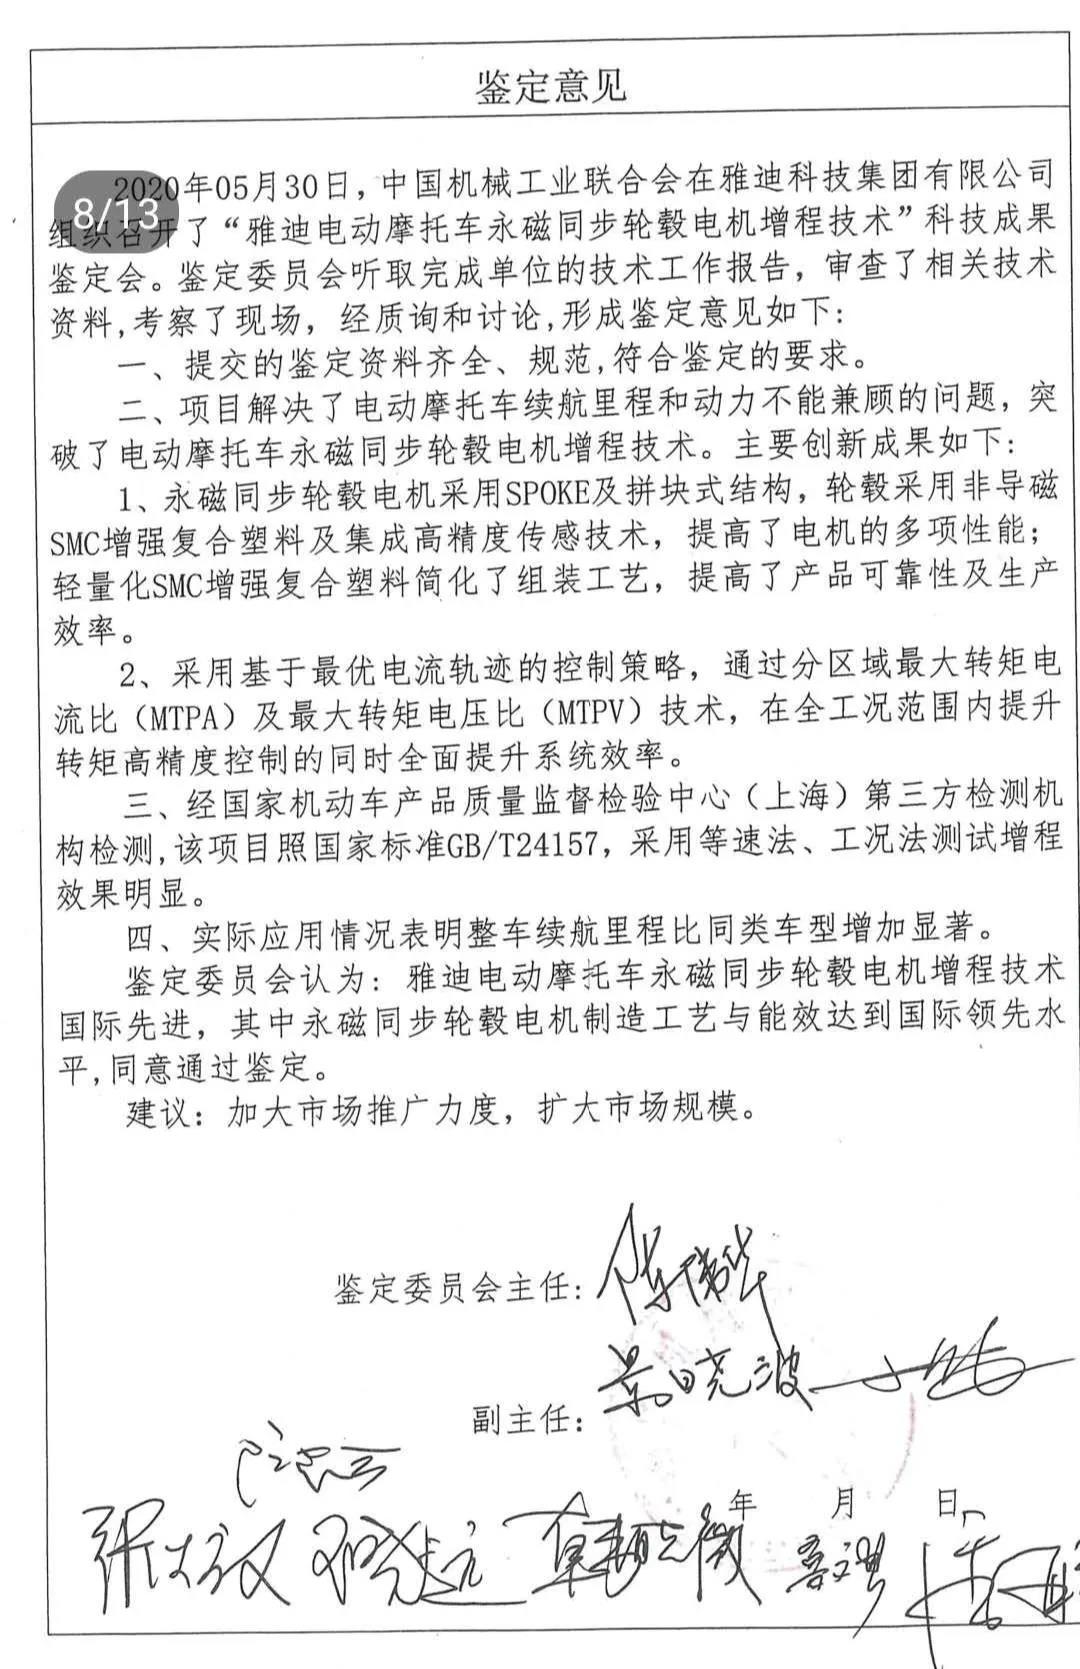 鉴定意见
8/13
2020年05月30日，中国机械工业联合会在雅迪科技集团有限公司
组织召开了“雅迪电动摩托车永磁同步轮毂电机增程技术”科技成果
鉴定会。鉴定委员会听取完成单位的技术工作报告，审查了相关技术
资料,考察了现场，经质询和讨论,形成鉴定意见如下:
一、提交的鉴定资料齐全、规范,符合鉴定的要求。
二、项目解决了电动摩托车续航里程和动力不能兼顾的问题，突
破了电动摩托车永磁同步轮毂电机增程技术。主要创新成果如下:
1、永磁同步轮毂电机采用SPOKE及拼块式结构，轮毂采用非导磁
SMC增强复合塑料及集成高精度传感技术，提高了电机的多项性能；
轻量化SMC增强复合塑料简化了组装工艺，提高了产品可靠性及生产
效率。
2、采用基于最优电流轨迹的控制策略，通过分区域最大转矩电
流比（MTPA）及最大转矩电压比（MTPV）技术，在全工况范围内提升
转矩高精度控制的同时全面提升系统效率。
三、经国家机动车产品质量监督检验中心（上海）第三方检测机
构检测,该项目照国家标准GB/T24157，采用等速法、工况法测试增程
效果明显。
四、实际应用情况表明整车续航里程比同类车型增加显著。
鉴定委员会认为: 雅迪电动摩托车永磁同步轮毂电机增程技术
国际先进，其中永磁同步轮毂电机制造工艺与能效达到国际领先水
平,同意通过鉴定。
建议: 加大市场推广力度，扩大市场规模。
鉴定委员会主任:
景晓波
副主任:
年 月 日